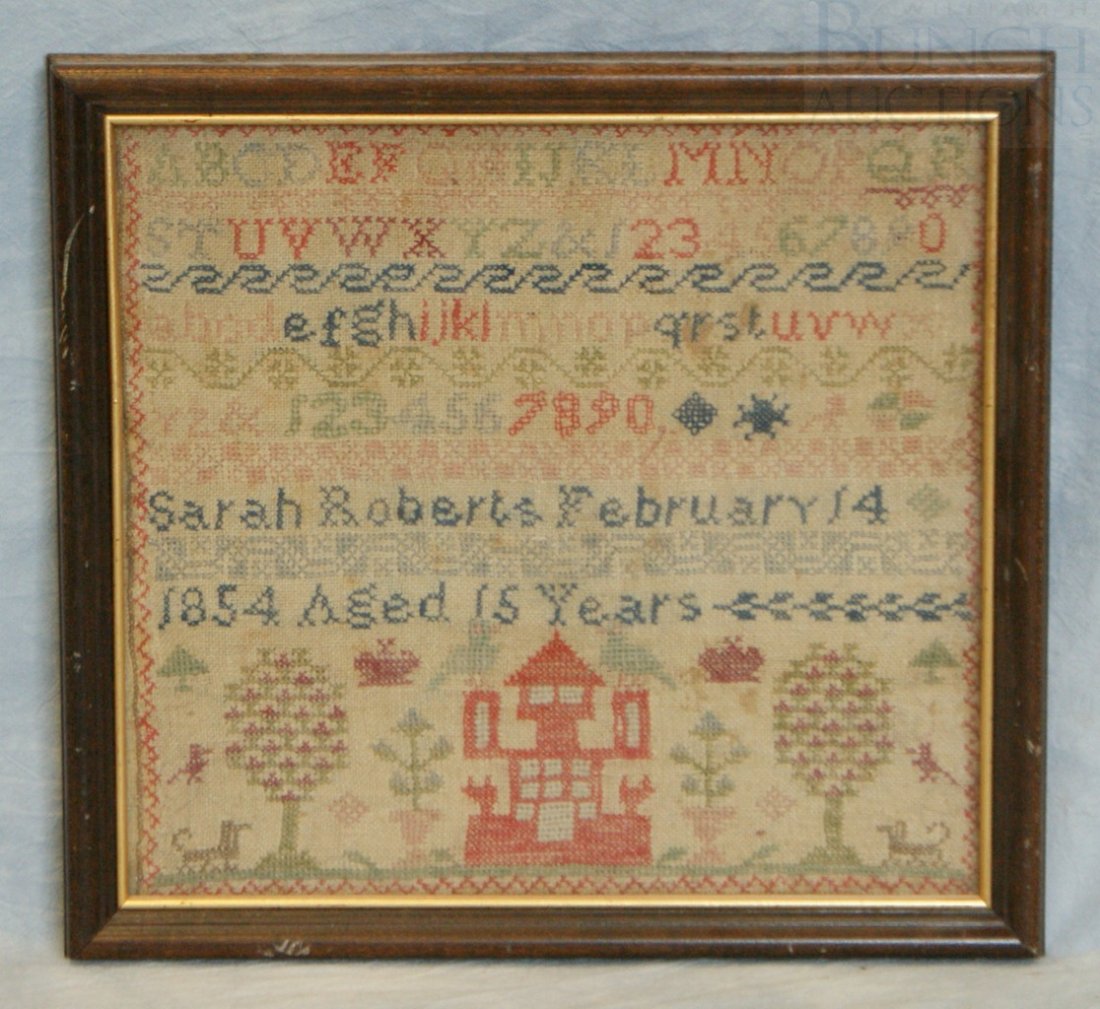 WILLIAM H
BUNCH
AUCTIONS
ABCDEFGHIJKLMNOPQR
STUVWXYZ&1234567890
abcdefghijklmnopqrstuvwx
yz& 1234567890
Sarah Roberts February 14
1854 Aged 15 Years